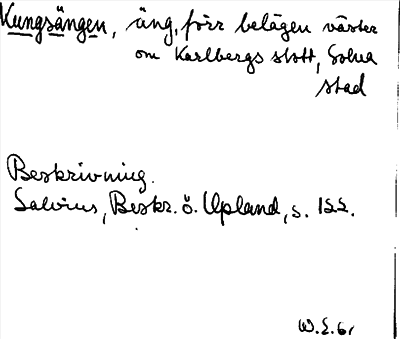 Kungsängen, äng, förr belägen väster
om Karlbergs slott, Solna
stad
Beskrivning.
Salvius, Beskr. ö. Upland, s. 122.
W.E. 61